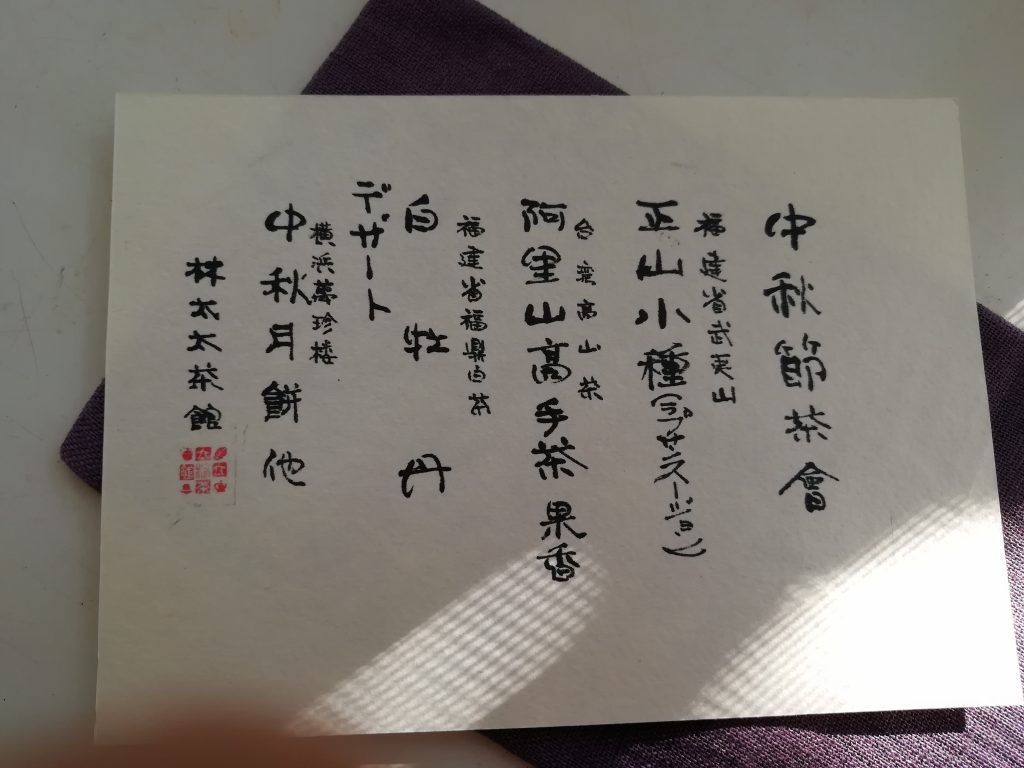 中秋節茶會
福建省武夷山
正山小種(ラプサンスーチョン)
台湾高山茶
阿里山高手茶果香
福建省福鼎白茶
白牡丹
デザート
横浜萬珍楼
中秋月餅他
林太太茶館